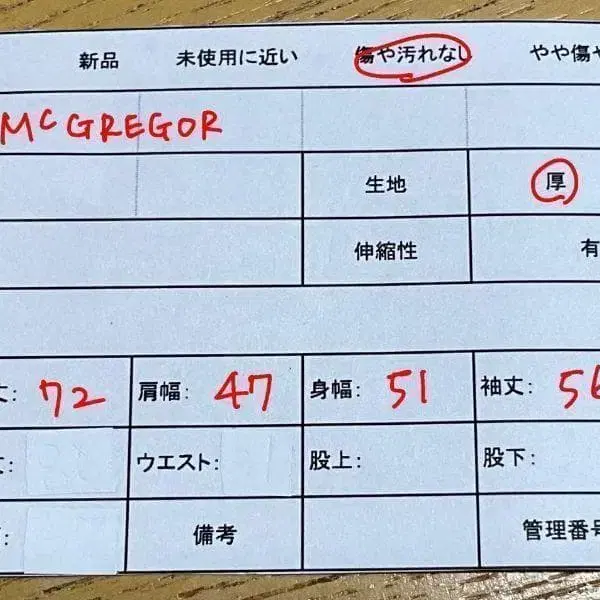 新品 未使用に近い 傷や汚れなし やや傷や
McGREGOR
生地 厚
伸縮性 有
丈: 72 肩幅: 47 身幅: 51 袖丈: 56
丈: ウエスト: 股上: 股下:
: 備考 管理番号